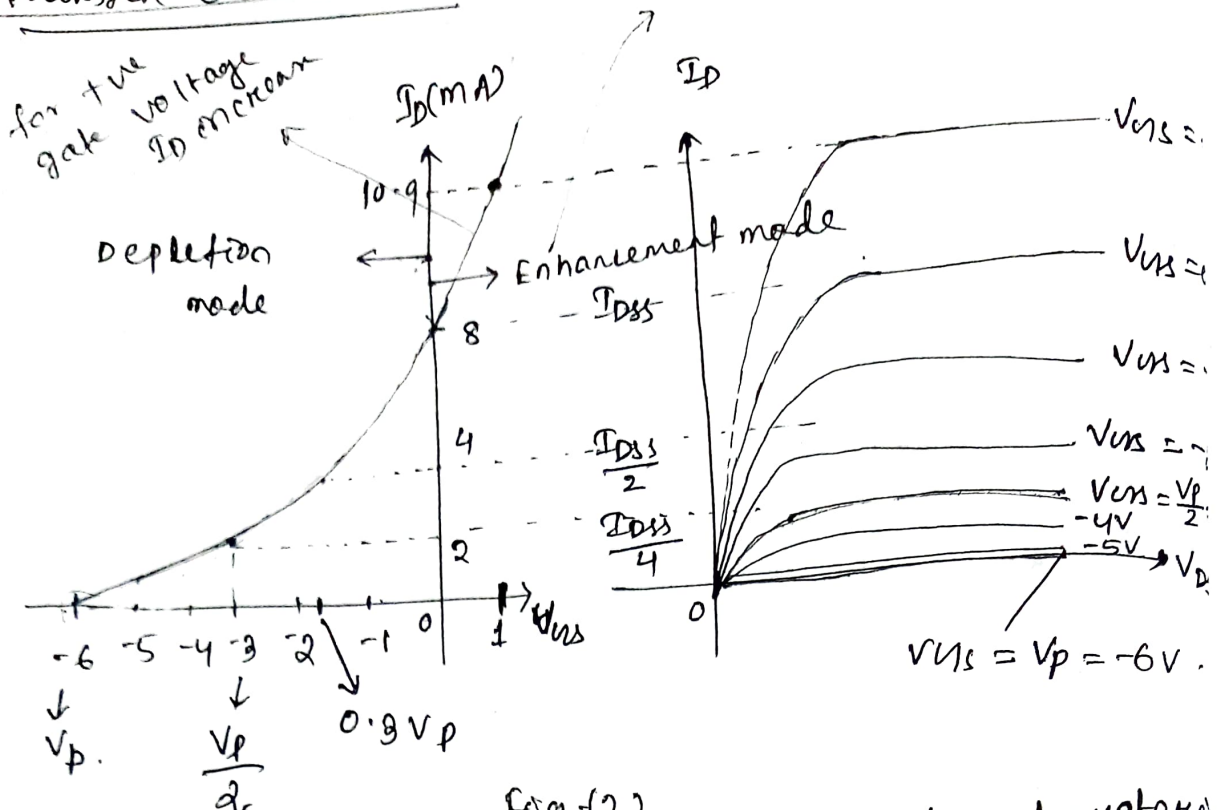 for +ve
gate voltage
ID increase
ID(mA)
10.9
Depletion
mode
Enhancement mode
8
4
2
-6 -5 -4 -3 -2 -1 0 1 VGS
↓
Vp.
↓
Vp
2
0.3 Vp
ID
VGS =
VGS =
IDSS
VGS =
IDSS
2
VGS = -
IDSS
4
VGS = Vp
2
-4V
-5V
VD
0
VGS = Vp = -6V.